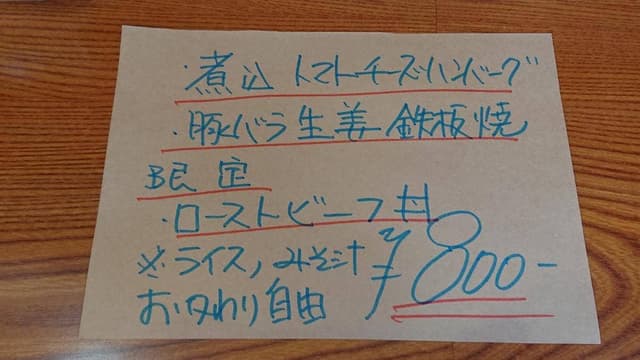 ・煮込トマトチーズハンバーグ
・豚バラ生姜鉄板焼
限定
・ローストビーフ丼
※ライス、みそ汁
おかわり自由
¥800-